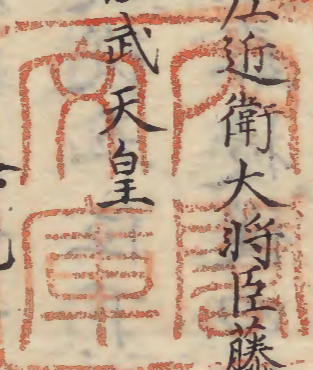 左近衛大将臣藤
武天皇